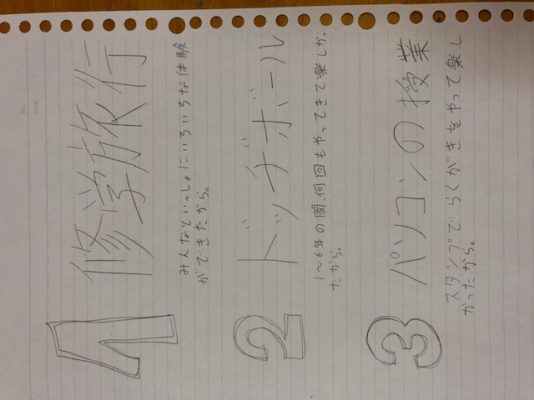 1 修学旅行
みんなといっしょにいろいろな体験
ができたから。
2 ドッチボール
1〜6年の間、何回もやってきて楽しか
たから。
3 パソコンの授業
スタンプで、らくがきをやって楽し
かったから。